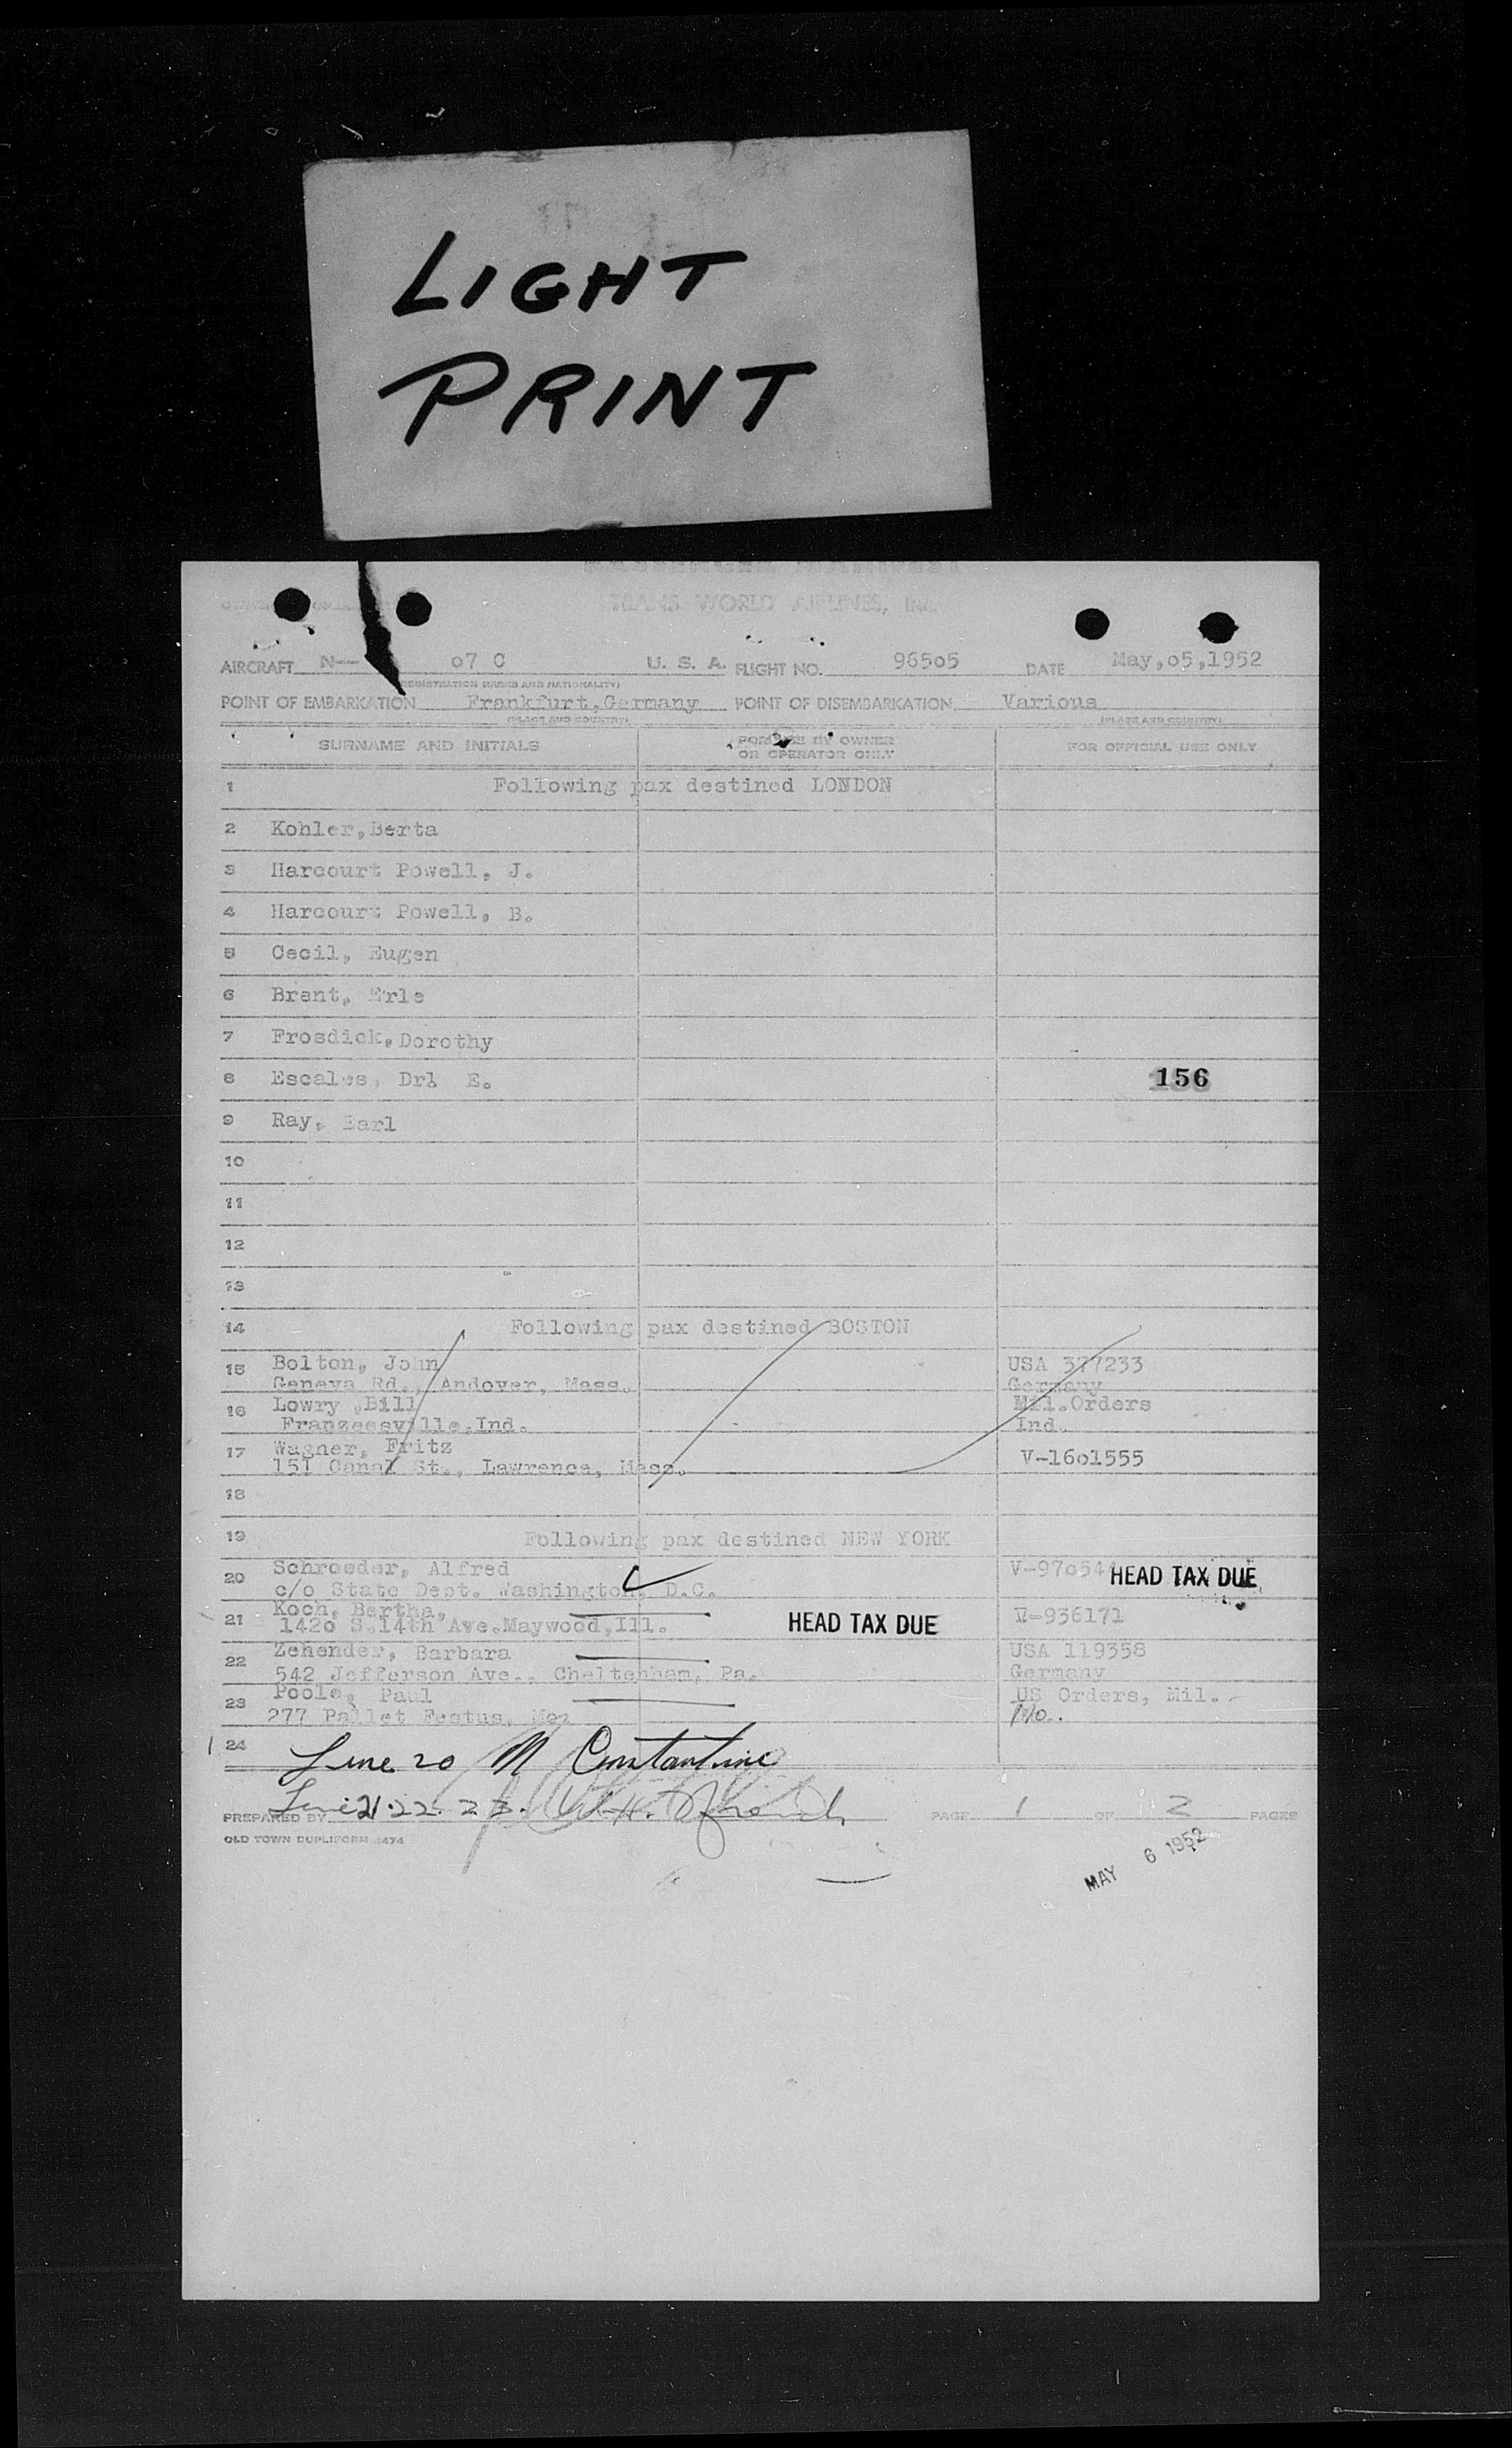 LIGHT
PRINT
PASSENGER MANIFEST
TRANS WORLD AIRLINES, INC.
AIRCRAFT N- 07 C U. S. A. FLIGHT NO. 96505 DATE May,05,1952
(REGISTRATION MARKS AND NATIONALITY)
POINT OF EMBARKATION Frankfurt,Germany POINT OF DISEMBARKATION Various
(PLACE AND COUNTRY) (PLACE AND COUNTRY)
SURNAME AND INITIALS FOR USE BY OWNER OR OPERATOR ONLY FOR OFFICIAL USE ONLY
1 Following pax destined LONDON
2 Kohler,Berta
3 Harcourt Powell, J.
4 Harcourt Powell, B.
5 Cecil, Eugen
6 Brent, Erle
7 Frosdick,Dorothy
8 Escales, Drl E. 156
9 Ray, Earl
10
11
12
13
14 Following pax destined BOSTON
15 Bolton, John USA 377233
Geneva Rd., Andover, Mass. Germany
16 Lowry ,Bill Mil.Orders
Franzeesville,Ind. Ind.
17 Wagner, Fritz V-1601555
151 Canal St., Lawrence, Mass.
18
19 Following pax destined NEW YORK
20 Schroeder, Alfred V-970544 HEAD TAX DUE
c/o State Dept. Washington, D.C.
21 Koch, Bertha, V-936171
1420 S.14th Ave.Maywood,Ill. HEAD TAX DUE
22 Zehender, Barbara USA 119358
542 Jefferson Ave., Cheltenham, Pa. Germany
23 Poole, Paul US Orders, Mil.
277 Pallet Festus, Mo. Mo.
24
Line 20 M Constantine
Line 21.22.23.
PREPARED BY PAGE 1 OF 2 PAGES
OLD TOWN DUPLIFORM 4474
MAY 6 1952